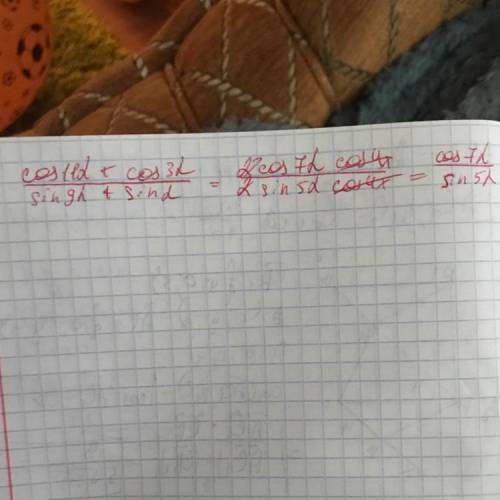 (cos11α + cos3α)/(sin9α + sinα) = (2cos7α cos4α)/(2 sin5α cos4α) = cos7α/sin5α